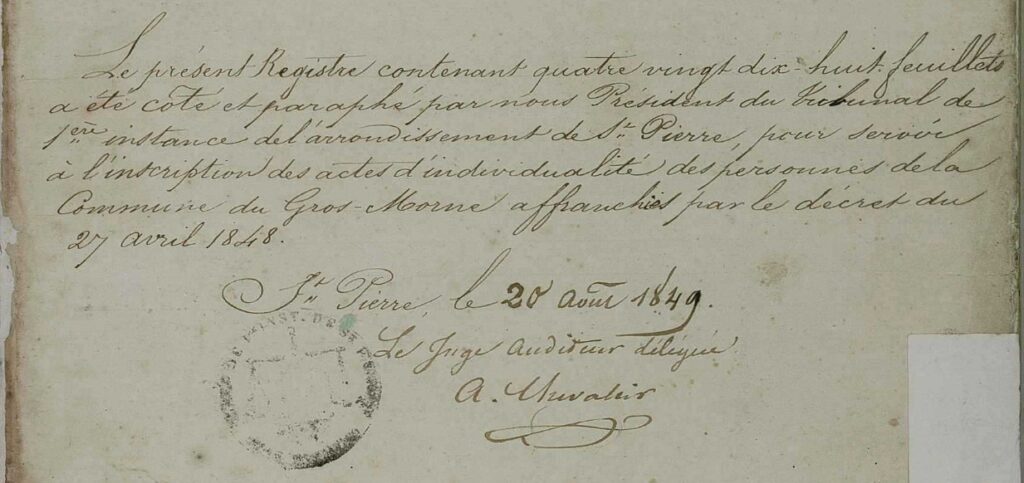 Le présent Registre contenant quatre vingt dix-huit feuillets
a été coté et paraphé par nous Président du Tribunal de
1ère instance de l'arrondissement de St. Pierre, pour servir
à l'inscription des actes d'individualité des personnes de la
Commune du Gros-Morne affranchies par le décret du
27 avril 1848.
St. Pierre, le 20 Août 1849.
Le Juge Auditeur délégué
A. Chevalier
DE 1e INST. DE St